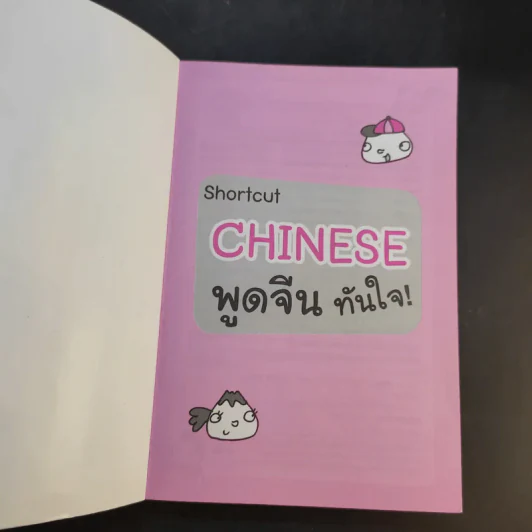 Shortcut
CHINESE
พูดจีน ทันใจ!